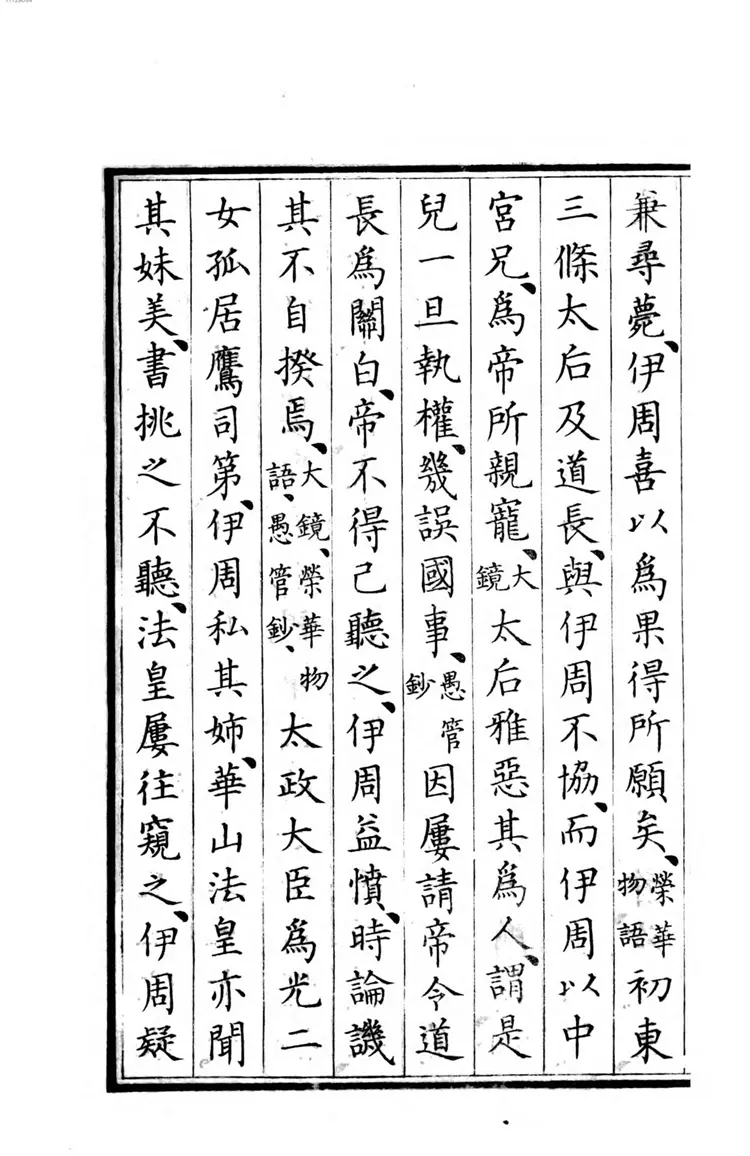 兼尋薨、伊周喜以爲果得所願矣、榮華物語初東
三條太后及道長、與伊周不協、而伊周以中
宮兄、爲帝所親寵、大鏡太后雅惡其爲人、謂是
兒一旦執權、幾誤國事、愚管鈔因屢請帝令道
長爲關白、帝不得已聽之、伊周益憤、時論譏
其不自揆焉、大鏡、榮華物語、愚管鈔、太政大臣爲光二
女孤居鷹司第、伊周私其姉、華山法皇亦聞
其妹美、書挑之不聽、法皇屢往窺之、伊周疑